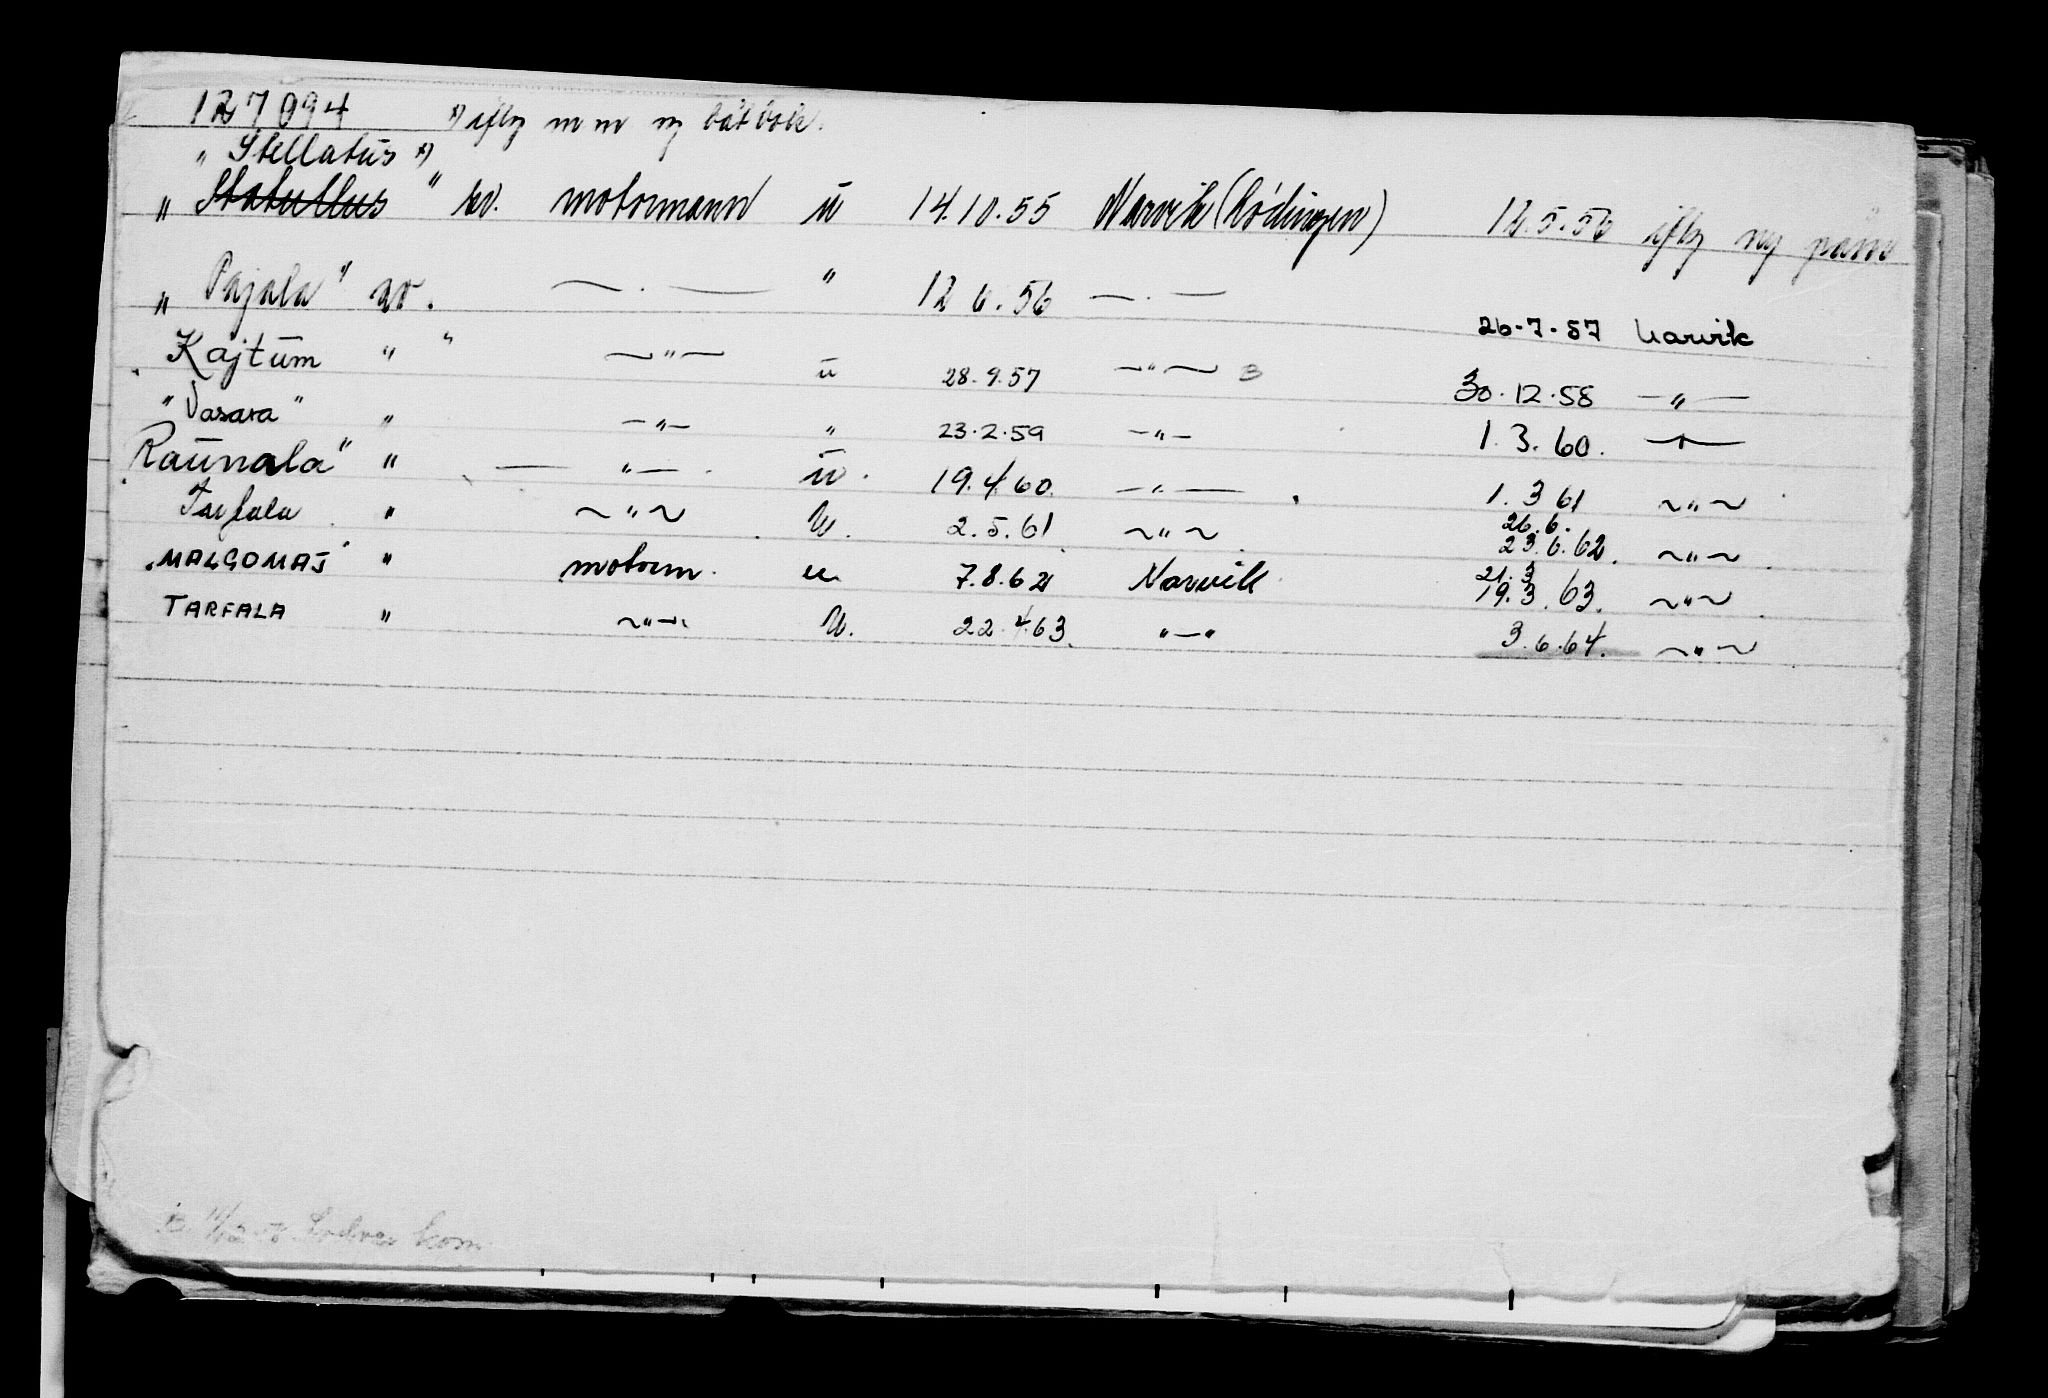 127094 x) iflg m m ny båtbok.
" Stellatus x)
" Statullus " sv. motormann u 14.10.55 Narvik (Lódingen) 12.5.56 iflg ny
" Pajala " sv. — . — " 12 6. 56 — . —
26-7-57 Narvik
Kajtum " " —"— u 28.9.57 —"— B 30.12.58 —"—
" Vasara " " —"— " 23.2.59 —"— 1.3.60. —"—
Raunala " " — "— . u. 19.4.60. —"— . 1.3 61 ~"~
Tarfala " ~"~ u. 2.5.61 ~"~ 26.6.
23.6.62. ~"~
"MALGOMAJ" " motorm. u. 7.8.62 Narvik 21.3
19.3.63. ~"~
TARFALA " ~"~. u. 22.4.63. "—" 3.6.64. ~"~
B. kom